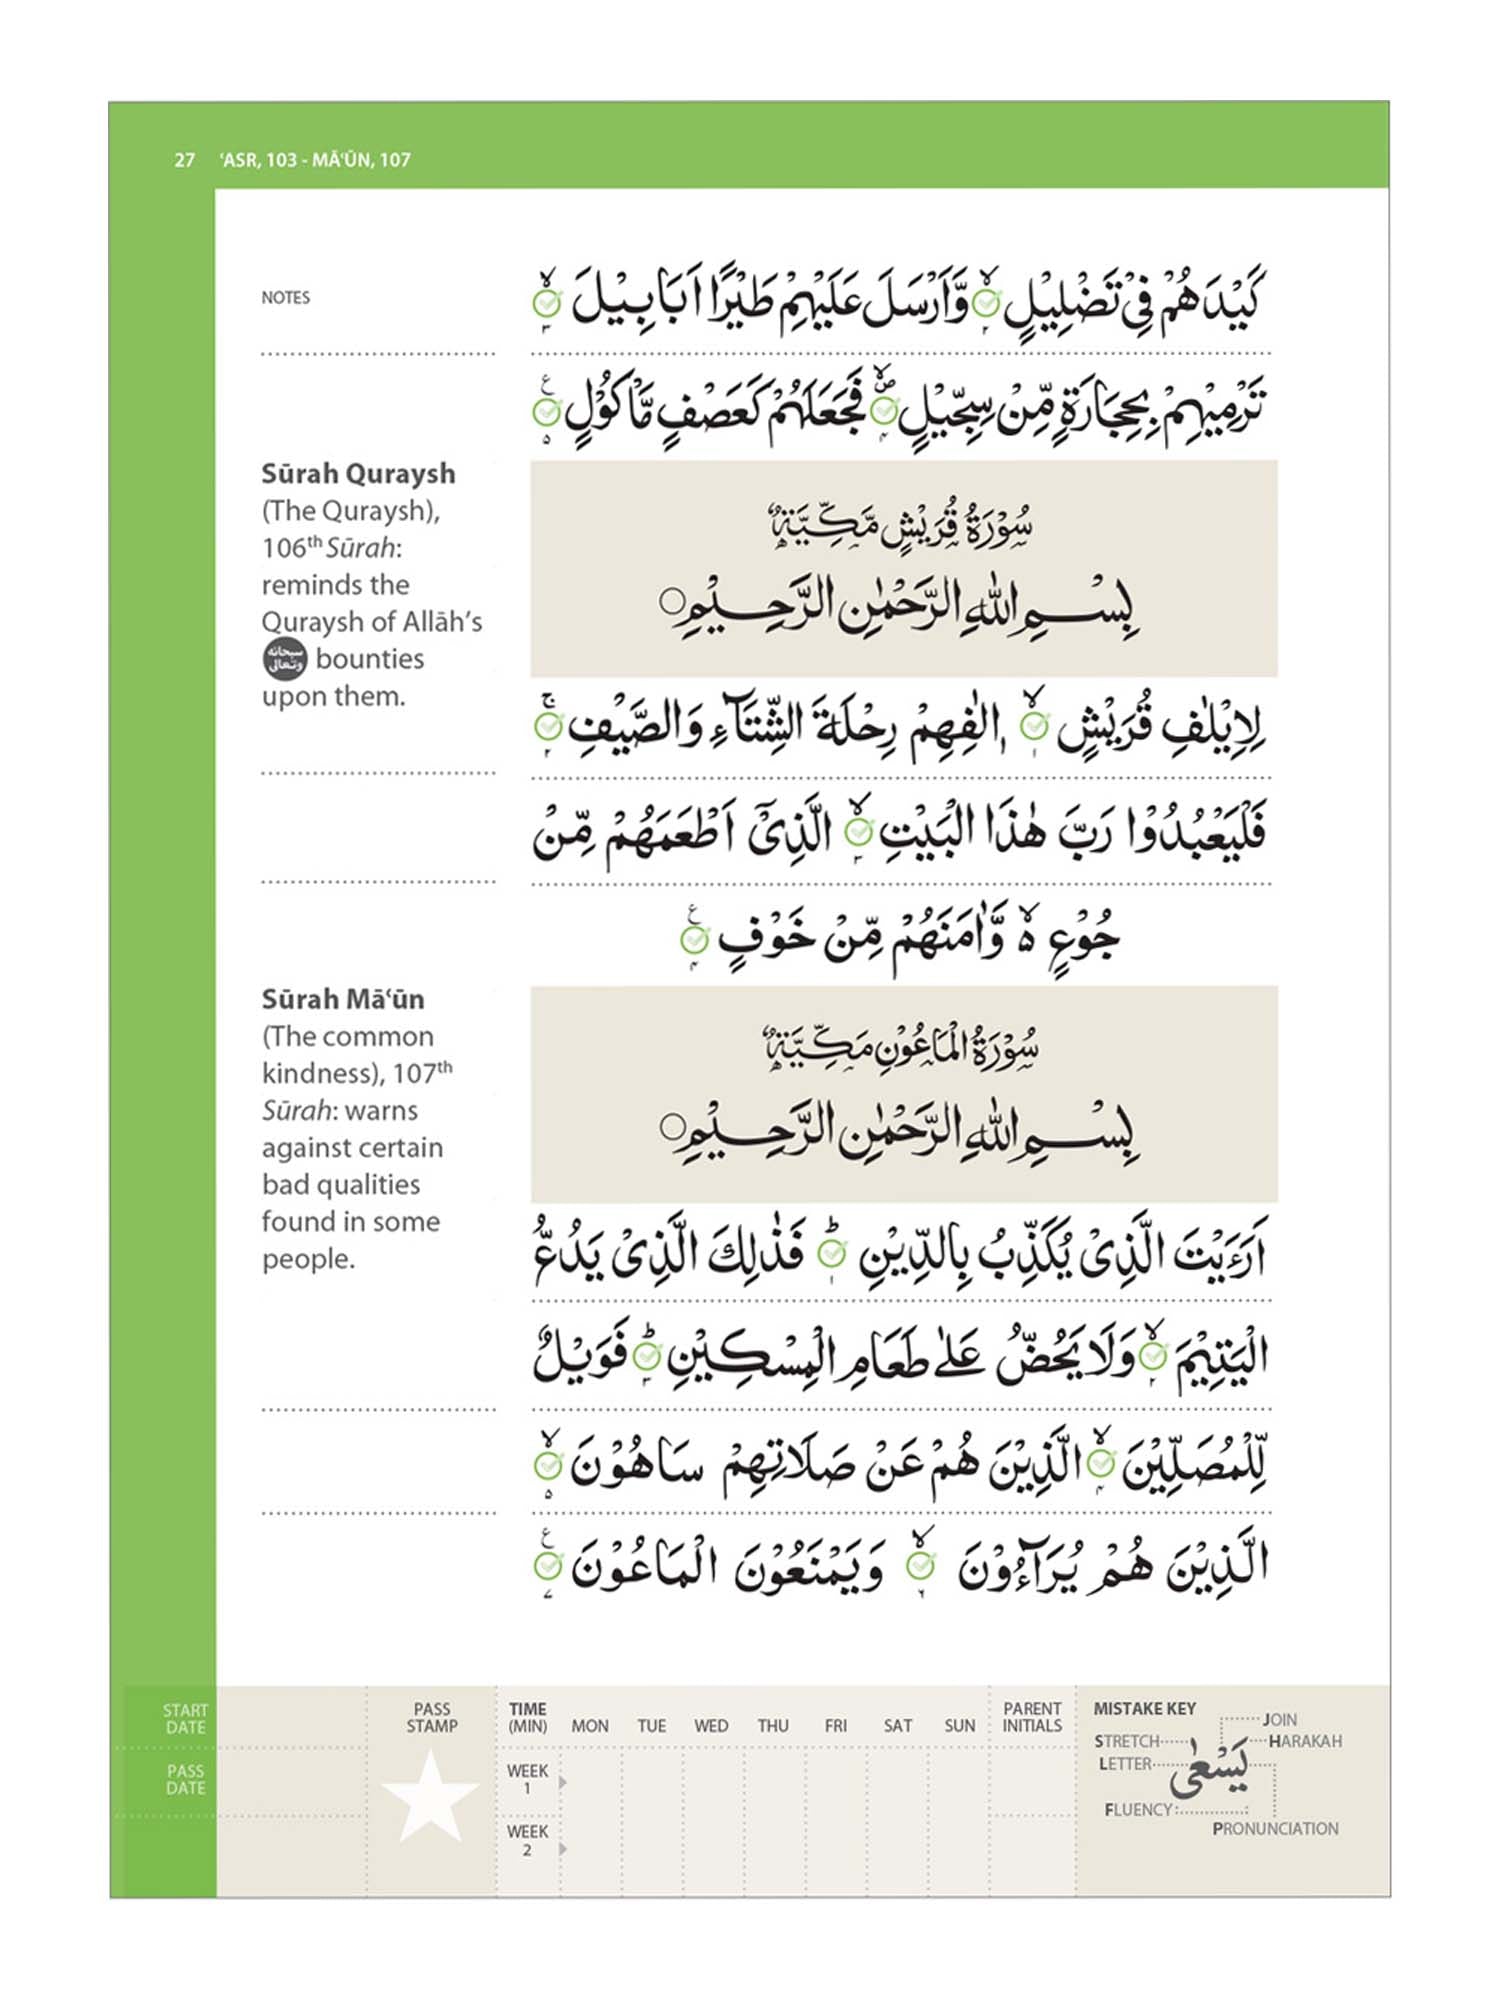 27 ʿASR, 103 - MĀʿŪN, 107
NOTES
كَيْدَهُمْ فِيْ تَضْلِيْلٍ ۙ۲ وَّاَرْسَلَ عَلَيْهِمْ طَيْرًا اَبَابِيْلَ ۙ۳
تَرْمِيْهِمْ بِحِجَارَةٍ مِّنْ سِجِّيْلٍ ۙ۴ فَجَعَلَهُمْ كَعَصْفٍ مَّاْكُوْلٍ ع۵
Sūrah Quraysh
(The Quraysh),
106th Sūrah:
reminds the
Quraysh of Allāh’s
سبحانه وتعالى bounties
upon them.
سُوْرَةُ قُرَيْشٍ مَّكِّيَّةٌ
بِسْمِ اللّٰهِ الرَّحْمٰنِ الرَّحِيْمِ ○
لِاِيْلٰفِ قُرَيْشٍ ۙ۱ اٖلٰفِهِمْ رِحْلَةَ الشِّتَآءِ وَالصَّيْفِ ۚ۲
فَلْيَعْبُدُوْا رَبَّ هٰذَا الْبَيْتِ ۙ۳ الَّذِيْٓ اَطْعَمَهُمْ مِّنْ
جُوْعٍ ۵ۙ وَّاٰمَنَهُمْ مِّنْ خَوْفٍ ع۴
Sūrah Māʿūn
(The common
kindness), 107th
Sūrah: warns
against certain
bad qualities
found in some
people.
سُوْرَةُ الْمَاعُوْنِ مَكِّيَّةٌ
بِسْمِ اللّٰهِ الرَّحْمٰنِ الرَّحِيْمِ ○
اَرَءَيْتَ الَّذِيْ يُكَذِّبُ بِالدِّيْنِ ؕ۱ فَذٰلِكَ الَّذِيْ يَدُعُّ
الْيَتِيْمَ ۙ۲ وَلَا يَحُضُّ عَلٰى طَعَامِ الْمِسْكِيْنِ ؕ۳ فَوَيْلٌ
لِّلْمُصَلِّيْنَ ۙ۴ الَّذِيْنَ هُمْ عَنْ صَلَاتِهِمْ سَاهُوْنَ ۙ۵
الَّذِيْنَ هُمْ يُرَآءُوْنَ ۙ۶ وَيَمْنَعُوْنَ الْمَاعُوْنَ ع۷
START DATE
PASS DATE
PASS STAMP
TIME (MIN) MON TUE WED THU FRI SAT SUN PARENT INITIALS
WEEK 1
WEEK 2
MISTAKE KEY
JOIN
STRETCH HARAKAH
LETTER يَسْعٰى
FLUENCY
PRONUNCIATION